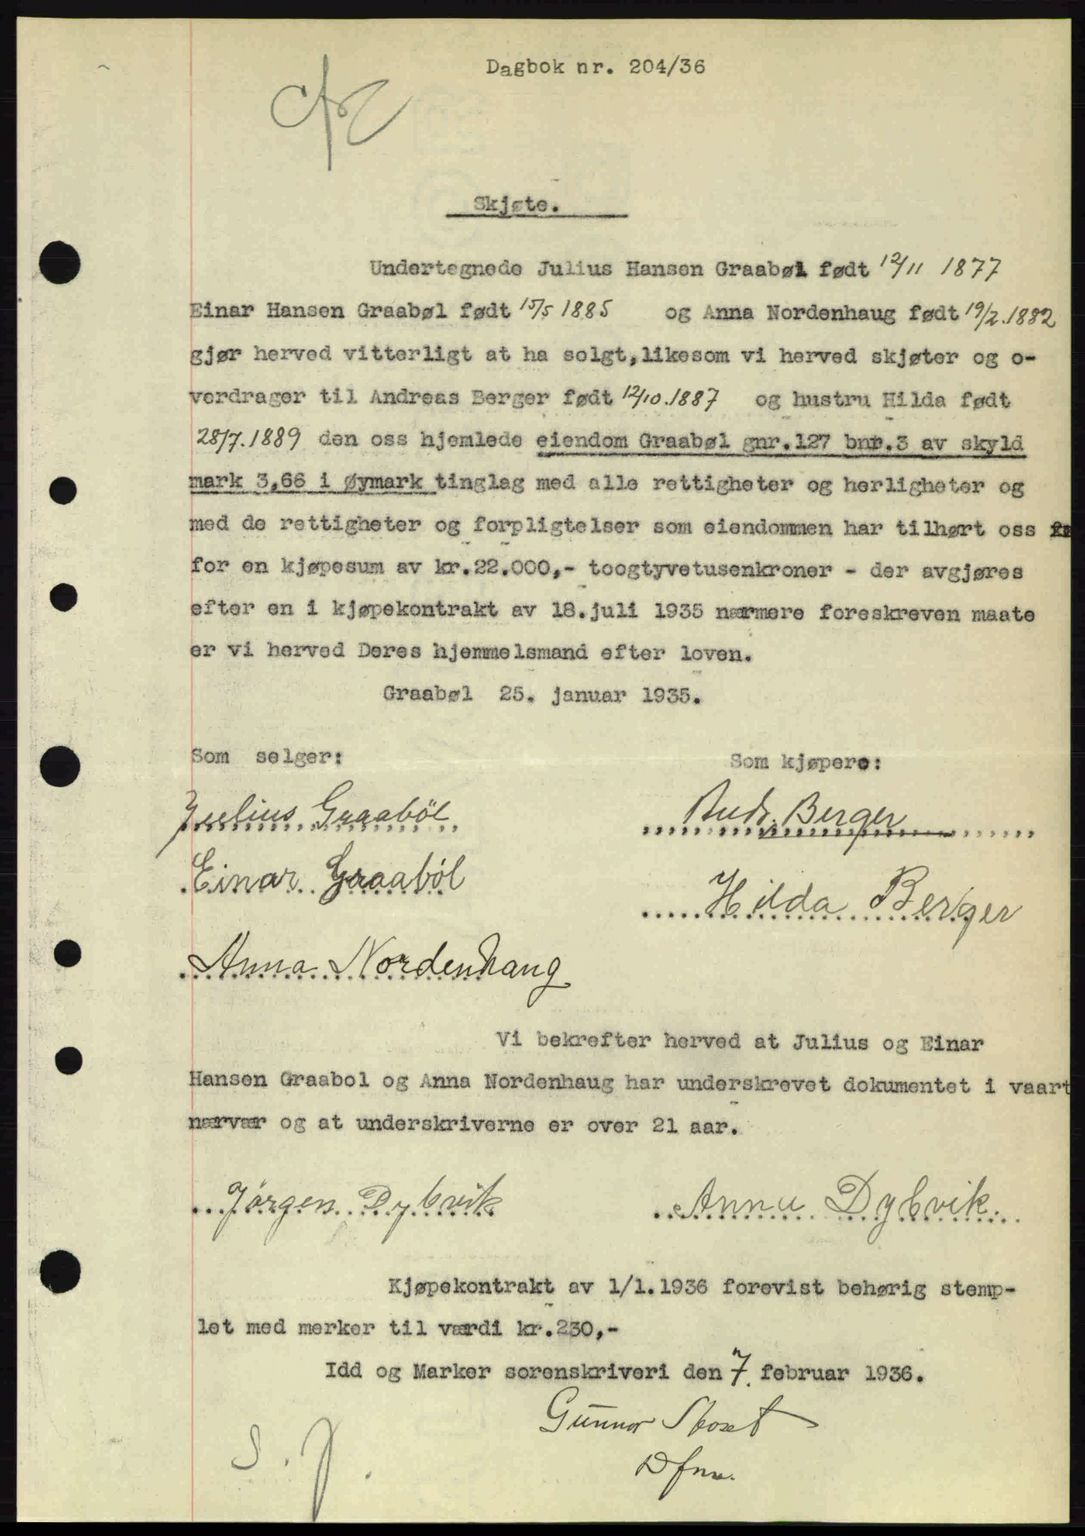 Dagbok nr. 204/36
Skjøte.
Undertegnede Julius Hansen Graabøl født 12/11 1877
Einar Hansen Graabøl født 15/5 1885 og Anna Nordenhaug født 19/2.1882
gjør herved vitterligt at ha solgt,likesom vi herved skjøter og o-
verdrager til Andreas Berger født 12/10.1887 og hustru Hilda født
28/7.1889 den oss hjemlede eiendom Graabøl gnr.127 bnr.3 av skyld
mark 3,66 i Øymark tinglag med alle rettigheter og herligheter og
med de rettigheter og forpligtelser som eiendommen har tilhørt oss
for en kjøpesum av kr.22.000,- toogtyvetusenkroner - der avgjøres
efter en i kjøpekontrakt av 18.juli 1935 nærmere foreskreven maate
er vi herved Deres hjemmelsmand efter loven.
Graabøl 25. januar 1935.
Som selger: Som kjøpere:
Julius Graabøl Andr. Berger
Einar Graabøl
Hilda Berger
Anna Nordenhaug
Vi bekrefter herved at Julius og Einar
Hansen Graabol og Anna Nordenhaug har underskrevet dokumentet i vaart
nærvær og at underskriverne er over 21 aar.
Jørgen Dybvik Anna Dybvik.
Kjøpekontrakt av 1/1.1936 forevist behørig stemp-
let med merker til værdi kr.230,-
Idd og Marker sorenskriveri den 7. februar 1936.
Gunnar
S. J.